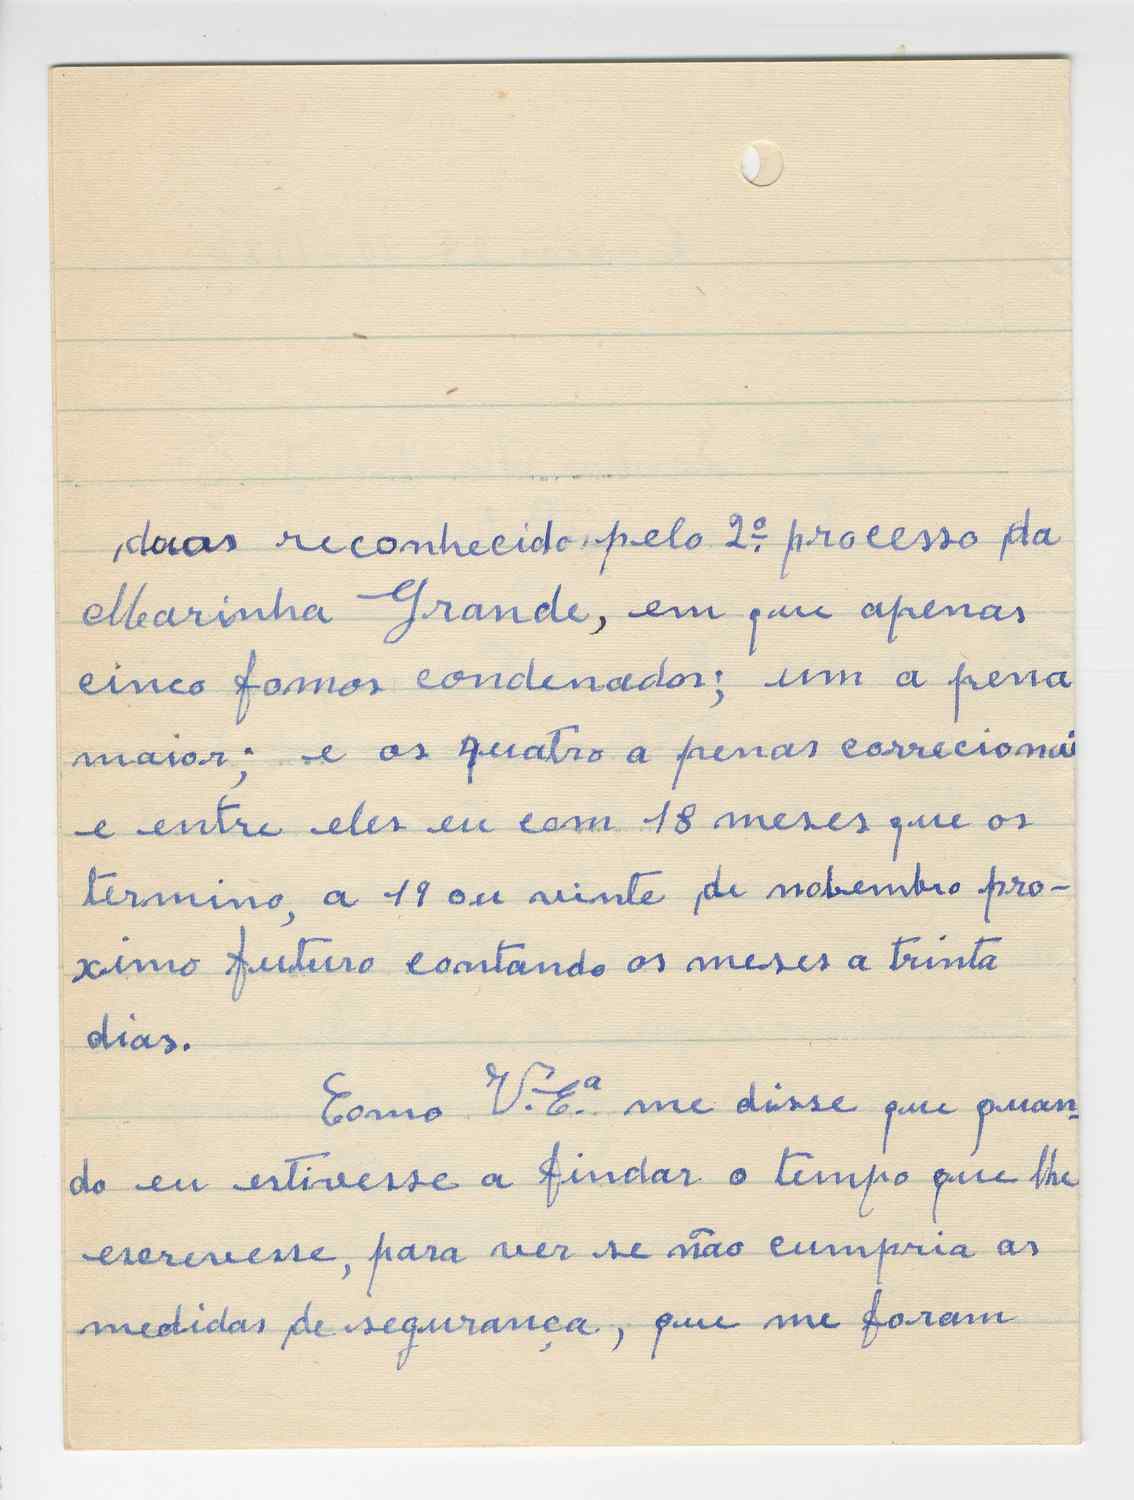 daas reconhecido, pelo 2º. processo da
Marinha Grande, em que apenas
cinco fomos condenados; um a pena
maior; e os quatro a penas correcionai
e entre eles eu com 18 meses que os
termino, a 19 ou vinte de nobembro pro-
ximo futuro contando os meses a trinta
dias.
Como V. E.ª me disse que quan-
do eu estivesse a findar o tempo que lhe
escrevesse, para ver se não cumpria as
medidas de segurança, que me foram